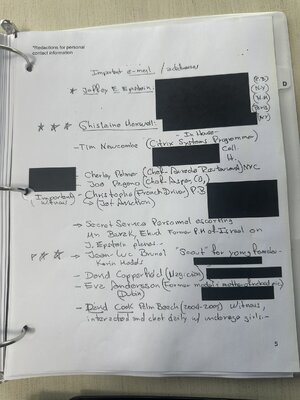 *Redactions for personal
contact information
Important e-mail / addresses
D
* Jeffrey E. Epstein:
(P.B)
(N.Y)
*** Ghislaine Maxwell:
- In House -
- Tim Newcombe (Citrix Systems Programmer)
Cell.
H.
Charley Palmer (Chef - Restaurant) NYC
Joe (Chef - Aspen CO)
- Christophe (French Driver) P.B
(Jet Aviation)
witness
→ Secret Service Personnel escorting
Mr. Barak, Ehud Former P.M of Israel on
J. Epstein planes -
*** - Jean-Luc Brunel "Scout" for young females
Karin Models
- David Copperfield (Magician)
- Eve Andersson (Former model &
Dubin)
- David Cook Palm Beach (2004-2005) Witness,
interacted and chat daily w/ underage girls. -
5